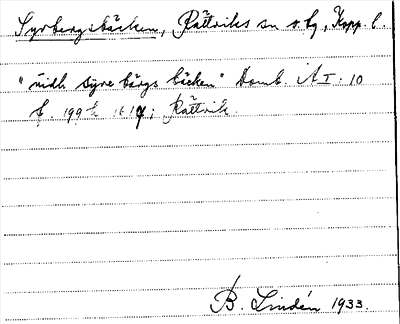 Syrbergsbäcken, Rättviks sn o. hg, Kopp. l.
"uidh Syre bärgs bäcken" Domb. AI: 10
f. 199 1617; Rättvik
B. Lindén 1933.